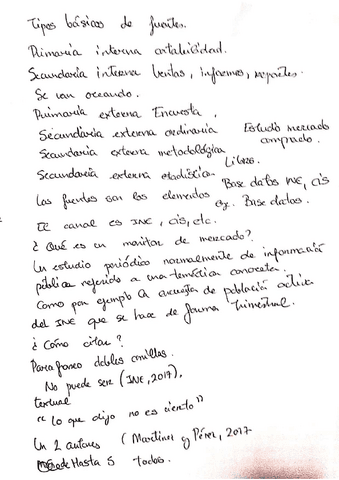 Tipos básicos de fuentes.
Primaria interna contabilidad.
Secundaria interna Ventas, informes, reportes.
Se van creando.
Primaria externa Encuesta,
Secundaria externa ordinaria Estudio mercado
comprado.
Secundaria externa metodológica Libros.
Secundaria externa estadística Base datos INE, CIS
Las fuentes son los elementos ej. Base datos.
El canal es INE, CIS, etc.
¿Qué es un monitor de mercado?
Un estudio periódico normalmente de información
pública referido a una temática concreta.
Como por ejemplo la encuesta de población activa
del INE que se hace de forma trimestral.
¿Cómo citar?
Parafraseo dobles comillas.
No puede ser (INE, 2017).
textual
"lo que dijo no es cierto"
Un 2 autores (Martínez y Pérez, 2017
Hasta 5 todos.